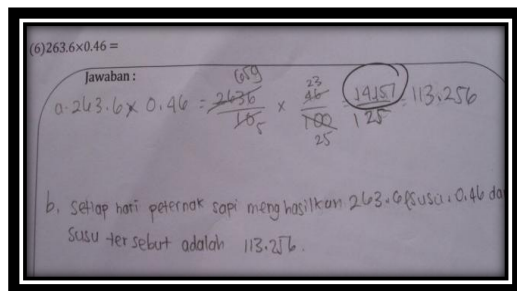 (6)263.6×0.46 =
Jawaban :
659 23
a. 263.6 x 0.46 = 2636/10 5 x 46/100 25 = 14157/125 = 113.256
b. Setiap hari peternak sapi menghasilkan 263.6 l susu. 0.46 da
susu tersebut adalah 113.256.